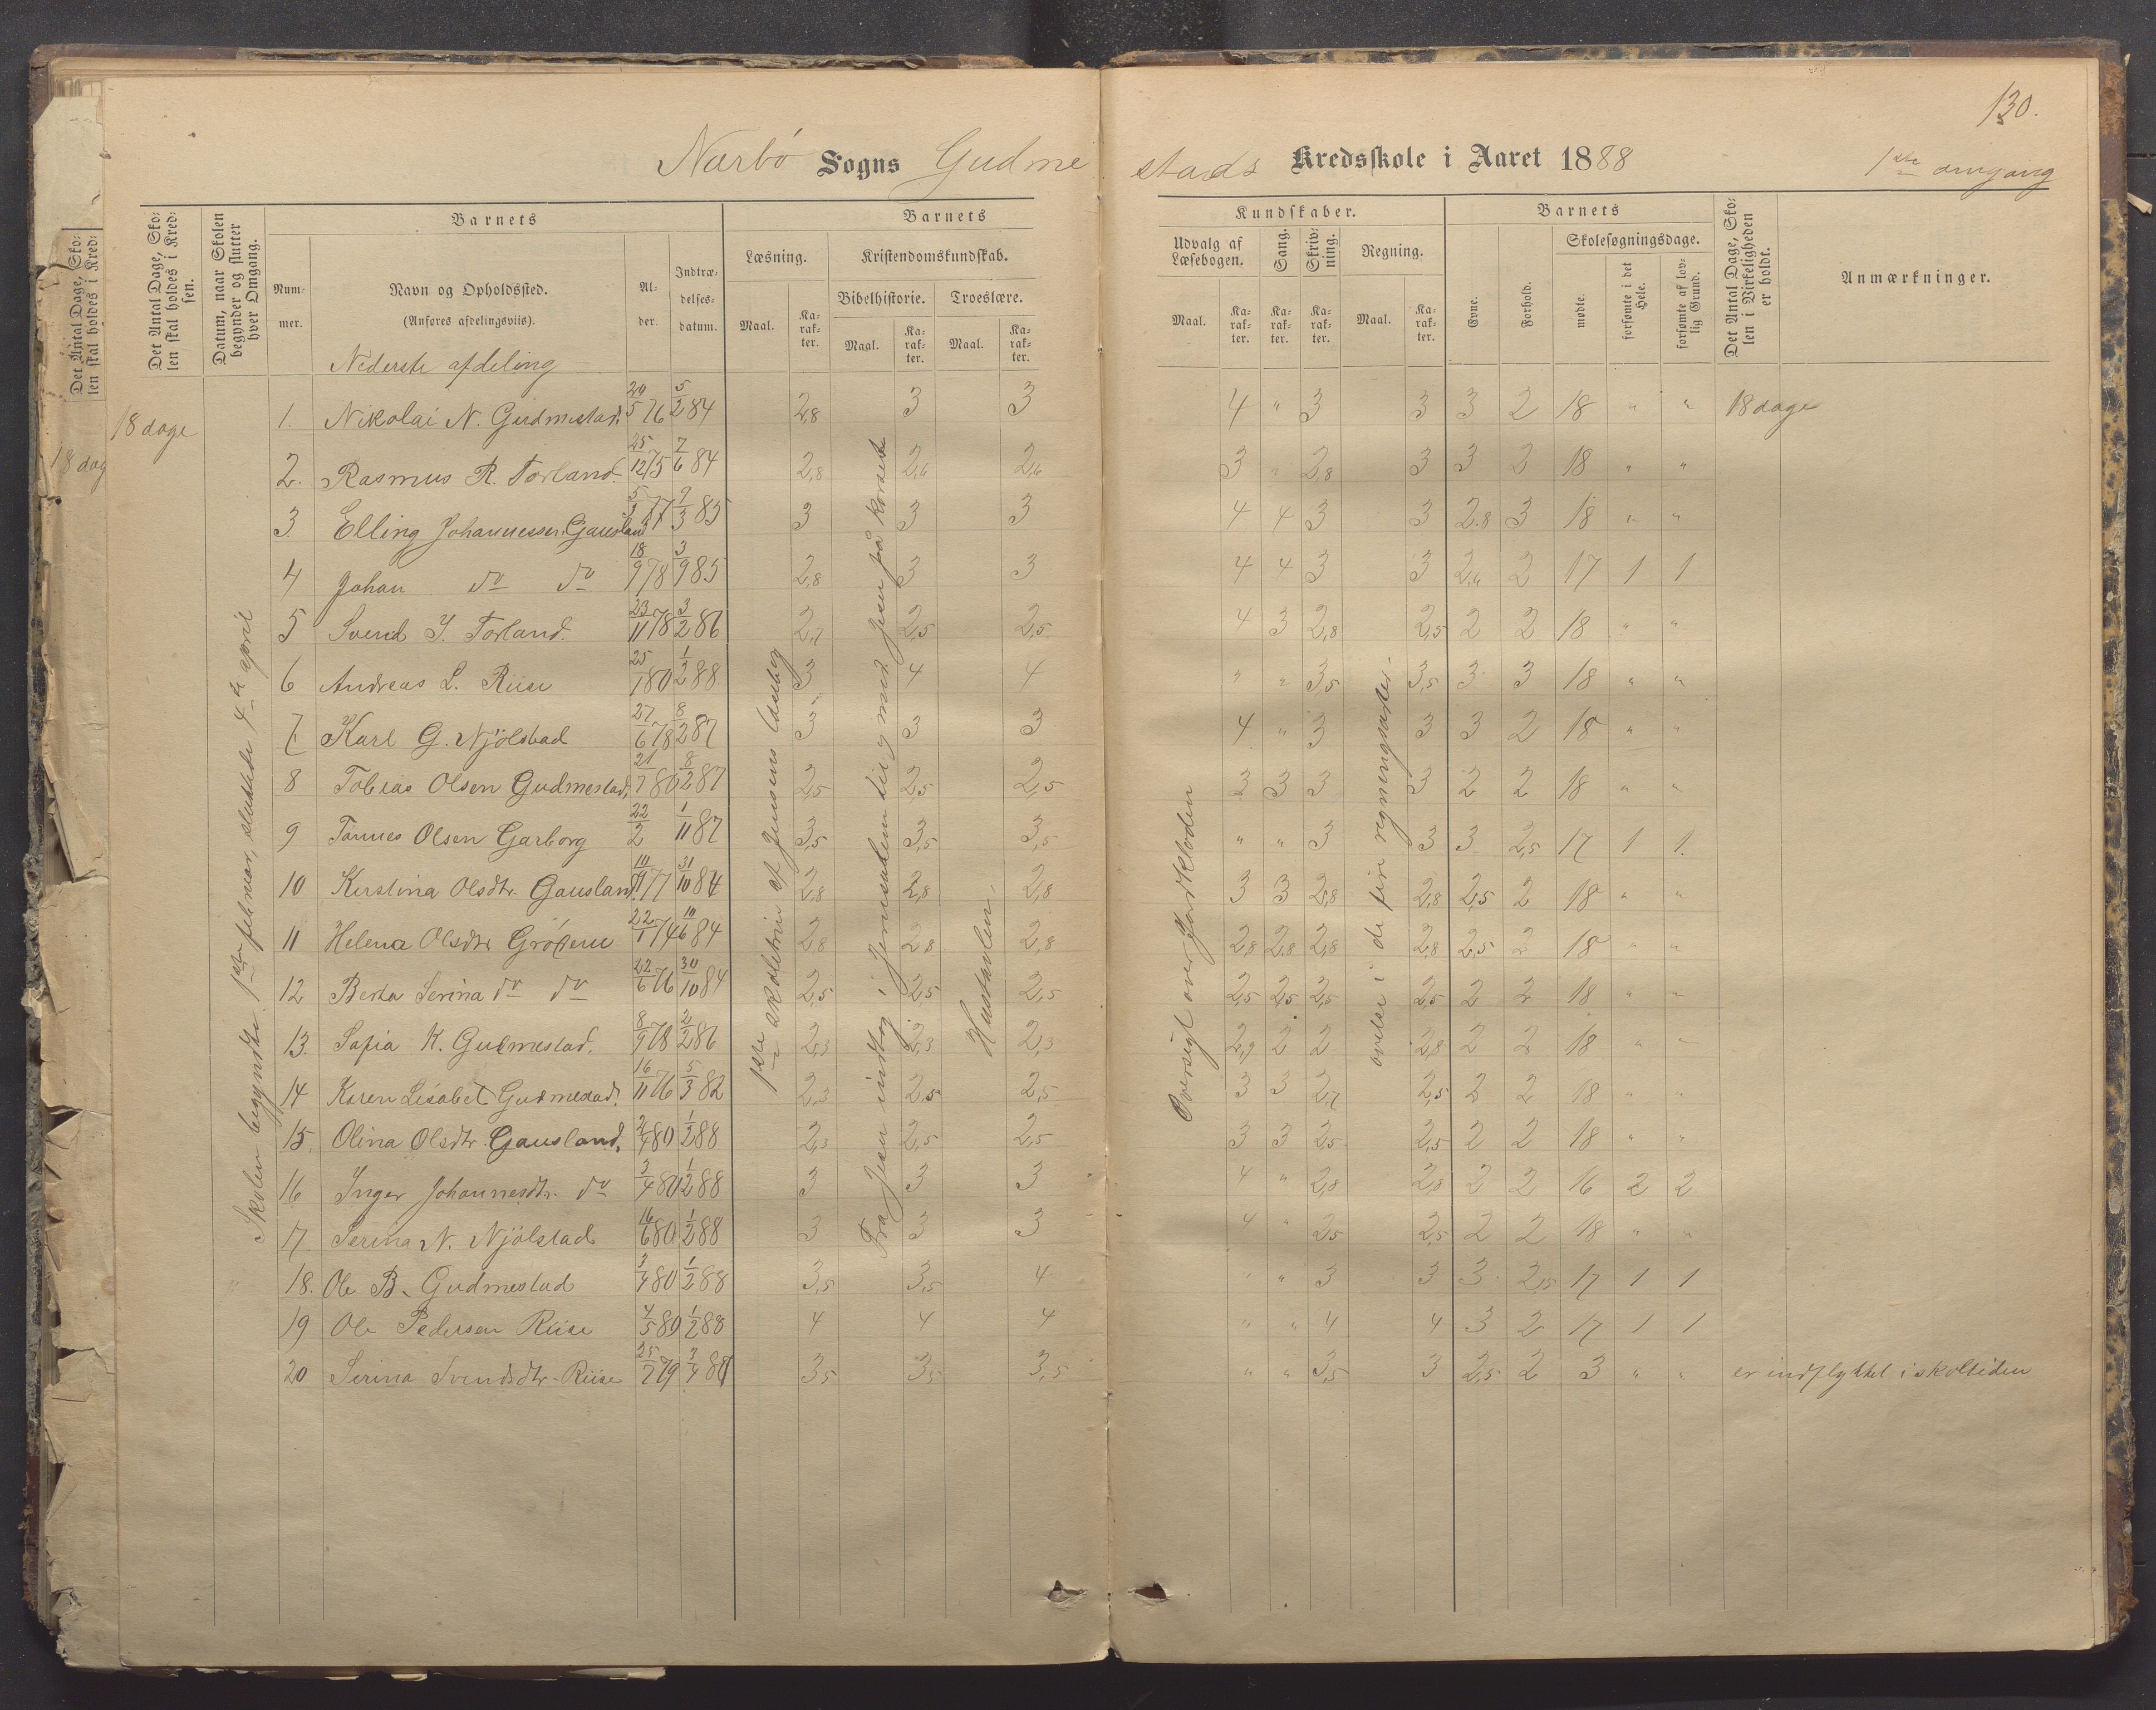 130.
Nærbö Sogns Gudmestads Kredsskole i Aaret 1888 1ste omgang
Det Antal Dage, Skolen skal holdes i Kredsen.
Datum, naar Skolen begynder og slutter hver Omgang.
Barnets
Nummer.
Navn og Opholdssted.
(Anføres afdelingsviis).
Alder.
Indtrædelsesdatum.
Barnets
Læsning.
Maal.
Karakter.
Kristendomskundskab.
Bibelhistorie.
Maal.
Karakter.
Troeslære.
Maal.
Karakter.
Kundskaber.
Udvalg af Læsebogen.
Maal.
Karakter.
Sang.
Karakter.
Skrivning.
Karakter.
Regning.
Maal.
Karakter.
Barnets
Evne.
Forhold.
Skolesøgningsdage.
mødte.
forsømte i det Hele.
forsømte af lovlig Grund.
Det Antal Dage, Skolen i Virkeligheden er holdt.
Anmærkninger.
Nederste afdeling
18 dage
Skolen begyndte 1ste februar, sluttede 4de april
1ste skoletrin af Jensens læsebog
Fra Jesu indtog i Jerusalem til og med Jesus på korset
Hustavlen
Oversigt over Jordkloden
øvelse i de fire regningsarter
1. Nikolai N. Gudmestad. 20/5 76 5/2 84 2,8 3 3 4 " 3 3 3 2 18 " " 18 dage
2. Rasmus R. Torland. 25/12 75 7/6 84 2,8 2,6 2,6 3 " 2,8 3 3 2 18 " "
3. Elling Johannessen Gausland 5/3 77 9/3 85 3 3 3 4 4 3 3 2.8 3 18 " "
4 Johan do do 18/9 78 3/9 85 2,8 3 3 4 4 3 3 2,6 2 17 1 1
5 Svend J. Torland. 23/11 78 3/2 86 2,7 2,5 2,5 4 3 2,8 2,5 2 2 18 " "
6 Andreas L. Riise 25/1 80 1/2 88 3 4 4 " " 3,5 3,5 3 3 18 " "
7. Karl G. Njölstad 27/6 78 8/2 87 3 3 3 4 " 3 3 3 2 18 " "
8 Tobias Olsen Gudmestad, 21/7 80 8/2 87 2,5 2,5 2,5 3 3 3 3 2 2 18 " "
9 Tönnes Olsen Garborg 22/2 1/11 87 3,5 3,5 3,5 " " 3 3 3 2,5 17 1 1.
10 Kirstina Olsdtr. Gausland. 10/11 77 31/10 84 2,8 2,8 2,8 3 3 2,8 2,8 2,5 2 18 " "
11 Helena Olsdtr Gröțem 22/1 74 10/6 84 2,8 2,8 2,8 2,8 2,8 2,8 2,8 2,5 2 18 " "
12 Berta Serina do do 22/6 76 30/10 84 2,5 2,5 2,5 2,5 2,5 2,5 2,5 2 2 18 " "
13. Sofia K. Gudmestad. 8/9 78 2/2 86 2,3 2,3 2,3 2,9 2 2 2,8 2 2 18 " "
14 Karen Lisabet Gudmestad. 16/11 76 5/3 82 2,3 2,5 2,5 3 3 2,7 2,5 2 2 18 " "
15. Olina Olsdtr. Gausland. 2/4 80 1/2 88 2,3 2,5 2,5 3 3 2,5 2,5 2 2 18 " "
16 Inger Johannesdtr. do 3/4 80 1/2 88 3 3 3 4 " 2,8 2,8 2 2 16 2 2
17. Serina N. Njölstad 16/6 80 1/2 88 3 3 3 4 " 2,5 2,5 2 2 18 " "
18. Ole B. Gudmestad 3/4 80 1/2 88 3,5 3,5 4 " " 3 3 3 2,5 17 1 1
19 Ole Pedersen Riise 4/5 80 1/2 88 4 4 4 " " 4 4 3 2 17 1 1
20 Serina Svendsdtr. Riise 25/7 79 3/4 88 3,5 3,5 3,5 " " 3,5 3 2,5 2 3 " " er indflyttet i skoletiden